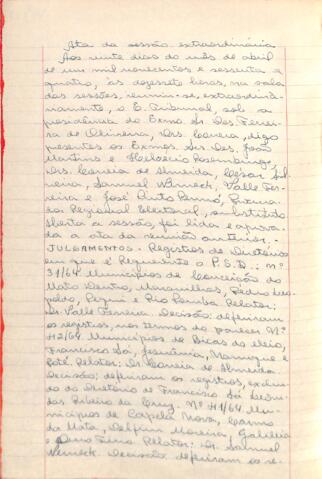 Ata da sessão extraordinária
Aos vinte dias do mês de abril
de um mil novecentos e sessenta e
quatro, às dezessete horas, na sala
das sessões, reuniu-se, extraordiná-
riamente, o E. Tribunal, sob a
presidência do Exmo. Sr. Des. Ferrei-
ra de Oliveira, Drs. Correia, digo
presentes os Exmos. Srs. Des. João
Martins e Helvécio Rosenburg,
Drs. Correia de Almeida, Cézar Sil-
veira, Samuel Werneck, Valle Fer-
reira e José Pinto Renó, Procura-
dor Regional Eleitoral, substituto.
Aberta a sessão, foi lida e aprova-
da a ata da reunião anterior. -
JULGAMENTOS. Registros de Diretórios
em que é Requerente o P.S.D.: nº
31/64 Municípios de Conceição do
Mato Dentro, Maravilhas, Pedro Leo-
poldo, Pequi e Rio Pomba. Relator:
Dr. Valle Ferreira. Decisão: deferiram
os registros, nos termos do parecer. Nº
42/64 Municípios de Bicas do Meio,
Francisco Sá, Jesuânia, Nanuque e
Poté. Relator: Dr. Correia de Almeida.
Decisão: deferiram os registros, exclui-
do do Diretório de Francisco Sá
das Ribeiro da Cruz. Nº 41/64 Mu-
nicípios de Capela Nova, Carmo
da Mata, Delfim Moreira, Galiléia
e Ouro Fino. Relator: Dr. Samuel
Werneck. Decisão: deferiram os re-